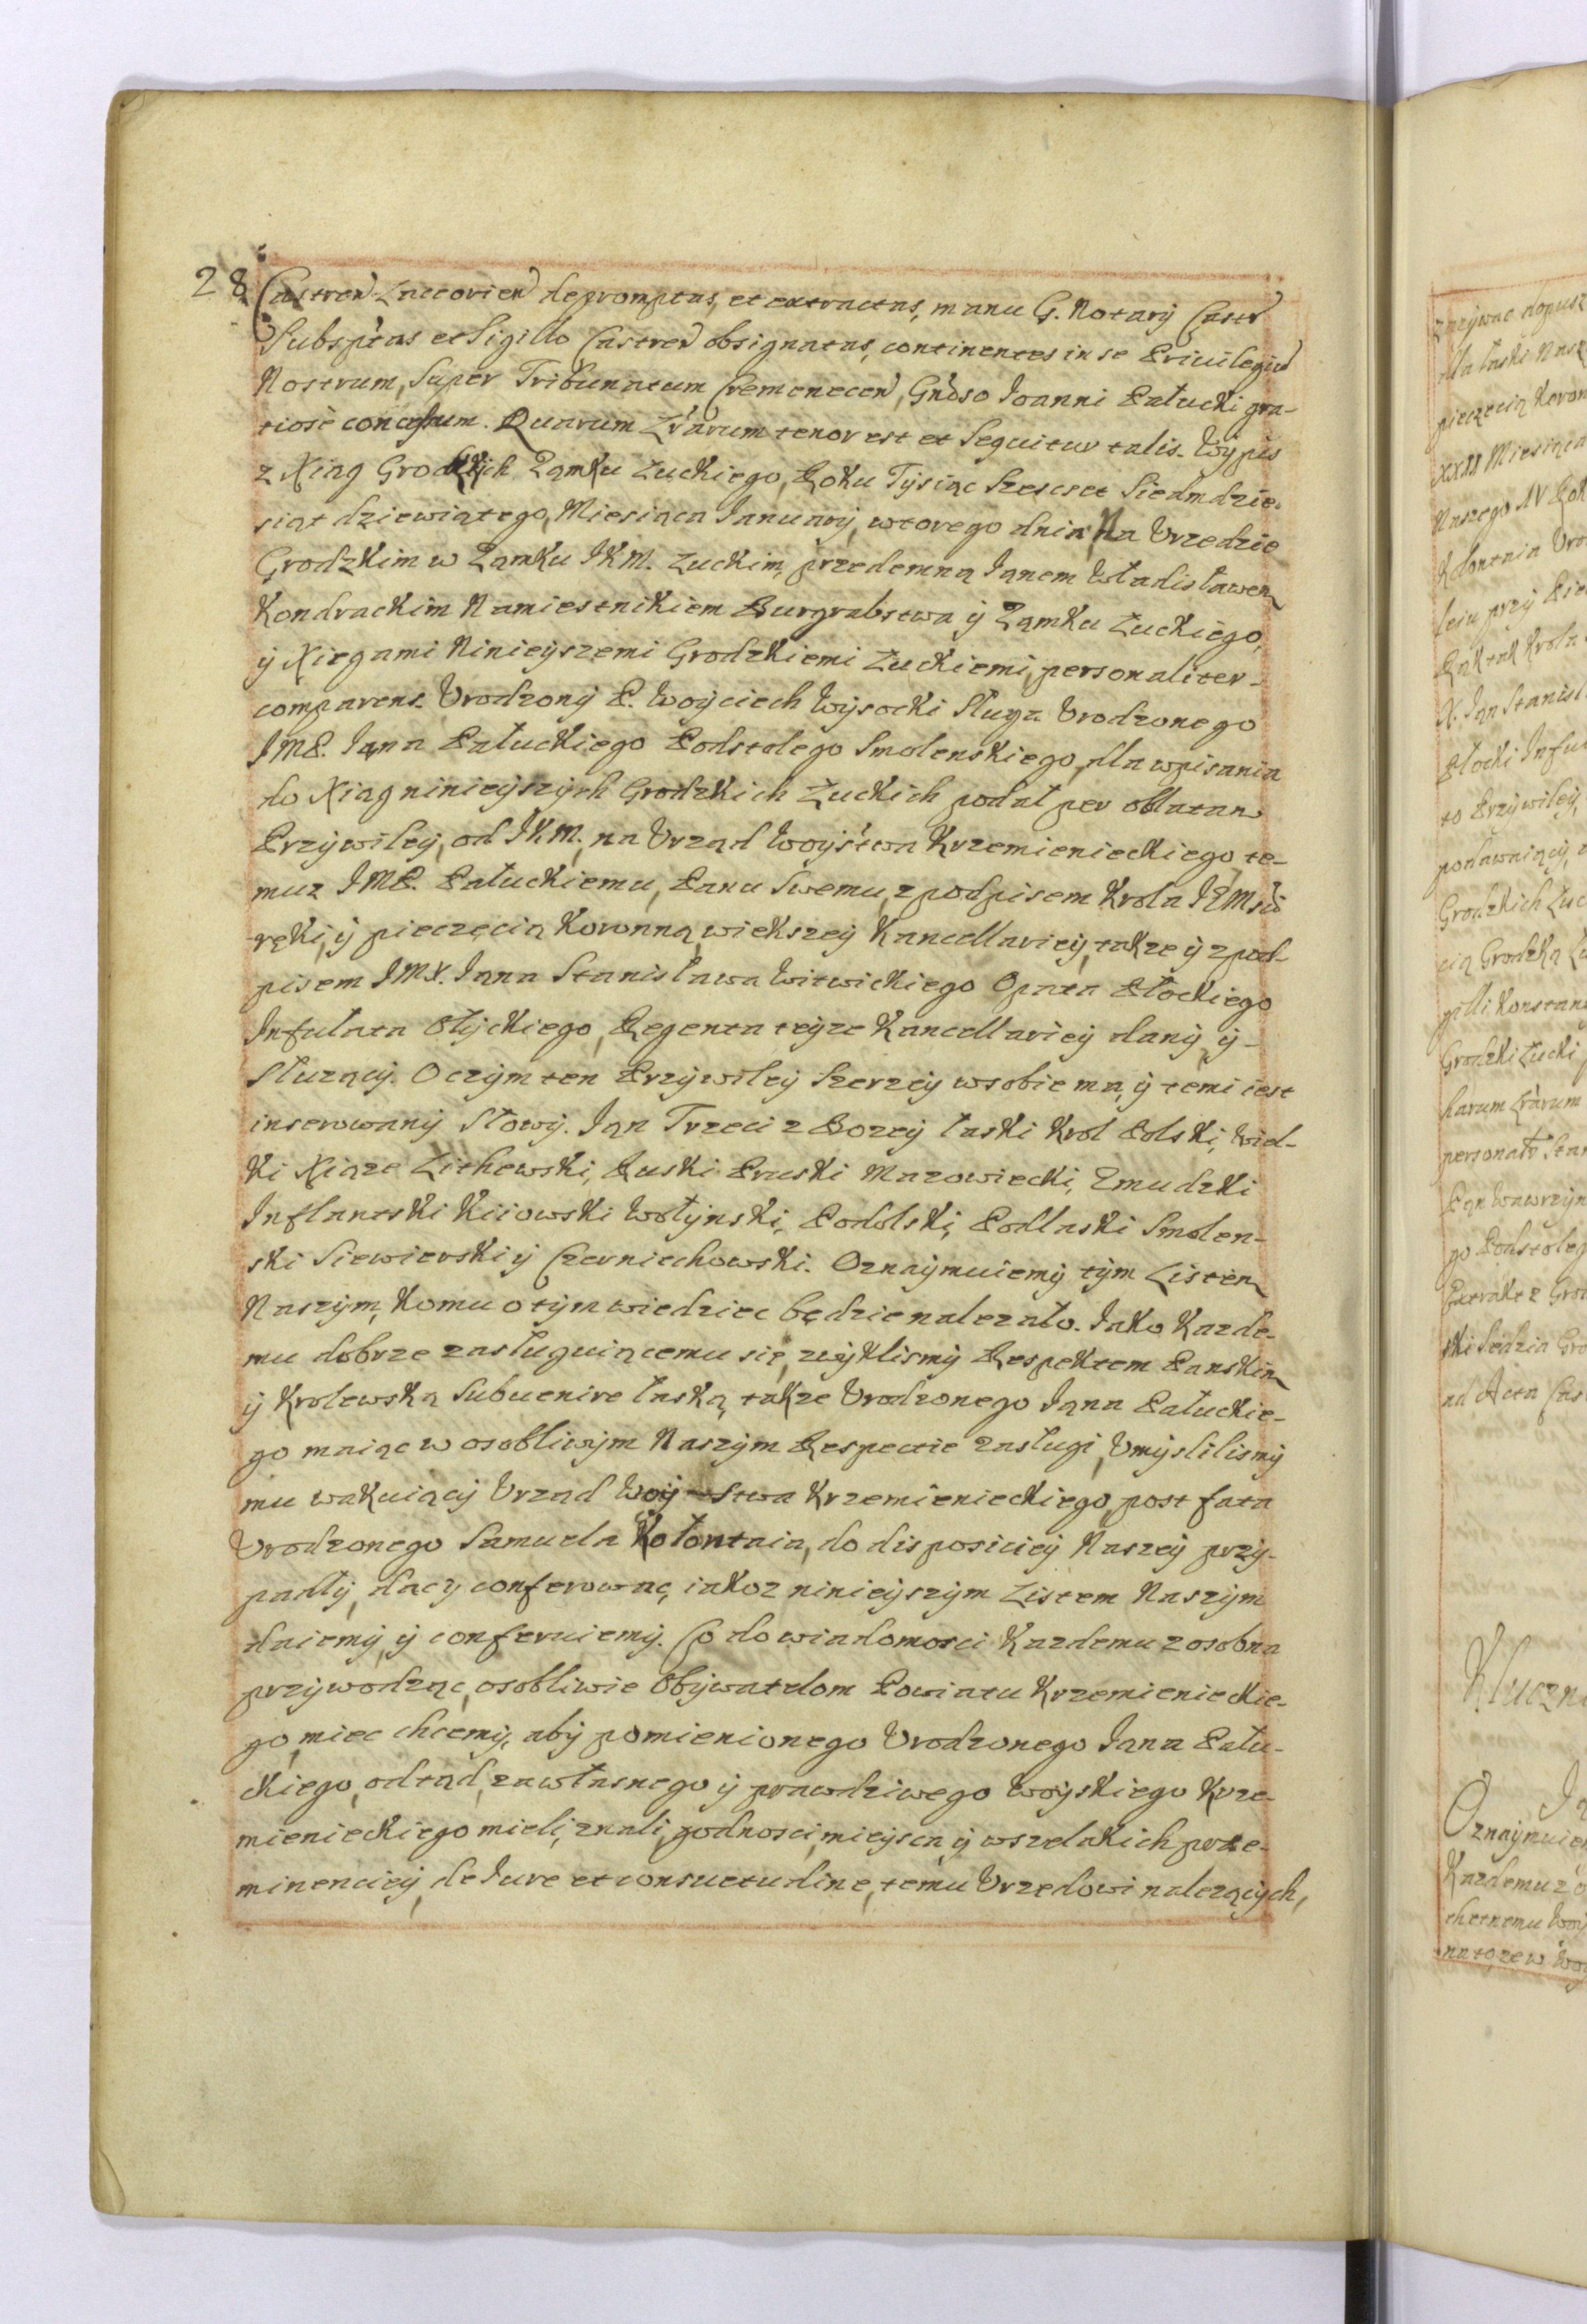 28
Castren Luceorien depromptas, et extractas, manu G. Notary Castr
Subsptas et Sigillo Castren obsignatas, continentes in se Priuilegium
Nostrum, Super Tribunatum Cremenecen, Gnoso Ioanni Pałucki gra-
tiosè concessum. Quarum Lrarum tenor est et Sequitur talis. Wypis
z Xiąg Grodzkich Zamku Łuckiego, Roku Tysiąc Szescset Siedmdzie-
siąt dziewiątego, Miesiąca January, wtorego dnia. Na Vrzędzie
Grodzkim w Zamku IKM. Łuckim, przedemną Ianem Władisławem
Kondrackim Namiestnikiem Burgrabstwa y Zamku Łuckiego,
y Xięgami Ninieyszemi Grodzkiemi Łuckiemi, personaliter-
comparens Vrodzony P. Woyciech Wysocki Sługa Vrodzonego
IMP. Iana Pałuckiego Podstolego Smolenskiego, dla wpisania
do Xiąg ninieyszych Grodzkich Łuckich podał per oblatam
Przywiley, od IKM., na Vrząd Woystwa Krzemienieckiego, te-
muz IMP. Pałuckiemu, Panu Swemu, z podpisem Krola
ręki, y pieczęcią Koronną większey Kancellariey, takze y z pod-
pisem IMX. Iana Stanisława Witwickiego Opata Płockiego
Infułata Ołyckiego, Regenta teyze Kancellariey dany, y-
Słuzący. O czym ten Przywiley Szerzey w sobie ma, y temi iest
inserowany Słowy. Ian Trzeci z Bozey łaski Krol Polski, Wiel-
ki Xiąze Lithewski, Ruski Pruski Mazowiecki, Zmudzki
Inflantski Kiiowski Wołynski, Podolski, Podlaski Smolen-
ski Siewierski y Czerniechowski. Oznaymuiemy tym Listem
Naszym, Komu o tym wiedziec będzie nalezało. Iako Kazde-
mu dobrze zasługuiącemu się, zwyklismy Respektem Panskim
y Krolewską Subuenire łaską, takze Vrodzonego Iana Pałuckie-
go maiąc w osobliwym Naszym Respectie zasługi, Vmyslilismy
mu wakuiący Vrząd Woy-stwa Krzemienieckiego, post fata
Vrodzonego Samuela Kołontaia, do disposiciey Naszey przy-
padły, dac y conferowac, iakoz ninieyszym Listem Naszym
daiemy, y conferuiemy. Co do wiadomosci Kazdemu z osobna
przywodząc, osobliwie Obywatelom Powiatu Krzemienieckie-
go, miec chcemy, aby pomienionego Vrodzonego Iana Pału-
ckiego, odtąd, za własnego y prawdziwego Woyskiego Krze-
mienieckiego mieli, znali, godnosci, mieysca, y wszelakich prae-
minenciey, de Iure et consuetudine, temu Vrzędowi nalezących,